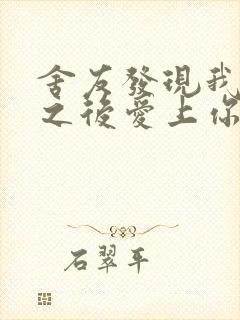 舍友發現我
之後愛上你
石翠平